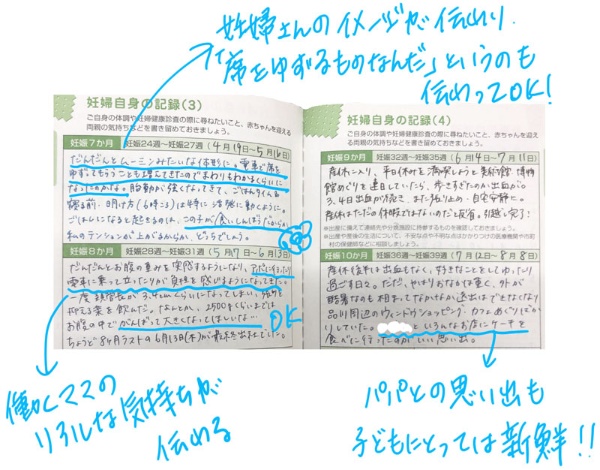 妊婦さんのイメージが伝わり
「席をゆずるものなんだ」というのも
伝わってOK!
妊婦自身の記録(3)
ご自身の体調や妊婦健康診査の際に尋ねたいこと、赤ちゃんを迎える
両親の気持ちなどを書き留めておきましょう。
妊娠7か月 妊娠24週~妊娠27週(4月19日~5月16日)
だんだんとムーミンみたいな体形に。電車で席を
ゆずってもらうことも増えてきたのでまわりもわかるくらいに
なったのかな。胎動が強くなってきて、ごはんタイムと
寝る前、明け方(6時ごろ)は特に活発に動くように。
ごはんになると起きるのは、この子が食いしんぼうだからか
私のテンションが上がるからか、どっちでしょう。
妊娠8か月 妊娠28週~妊娠31週(5月17日~6月13日)
だんだんとお腹の重みを実感するようになり、
電車に乗って立ったりが負担を感じるようになってきた。
一度頸管長が3.4センチくらいになってしまい、張りを
抑える薬を飲んだ。なんとか、2500gくらいまでは
お腹の中でがんばって大きくなってほしいな…
ちょうど8か月ラストの6月13日(木)が最終出社でした。
OK
働くママの
リアルな気持ちが
伝わる
妊婦自身の記録(4)
ご自身の体調や妊婦健康診査の際に尋ねたいこと、赤ちゃんを迎える
両親の気持ちなどを書き留めておきましょう。
妊娠9か月 妊娠32週~妊娠35週(6月14日~7月11日)
産休に入り、平日休みを満喫しようと美術館、博物
館めぐりを連日していたら、歩きすぎたのか出血が
3、4日出血が続き、また張り止め・自宅安静に。
産休はただの休暇ではないのだと反省。引越も完了!
※出産に備えて連絡先や分娩施設に移動する方法を確認しておきましょう。
※出産や産後の生活について、不安な点や不明な点はかかりつけの医療機関や市町
村の保健師などに相談しましょう。
妊娠10か月 妊娠36週~妊娠39週(7月12日~8月8日)
産休後半は出血もなく、好きなことをしてゆったり
過ごす日々。ただ、やはりおなかは重く、外が
酷暑なのも相まってなかなか遠出はできなくなり
品川周辺のウィンドウショッピング、カフェめぐりばか
りしていた。 といろんなお店にケーキを
食べに行ったのがいい思い出。
パパとの思い出も
子どもにとっては新鮮!!